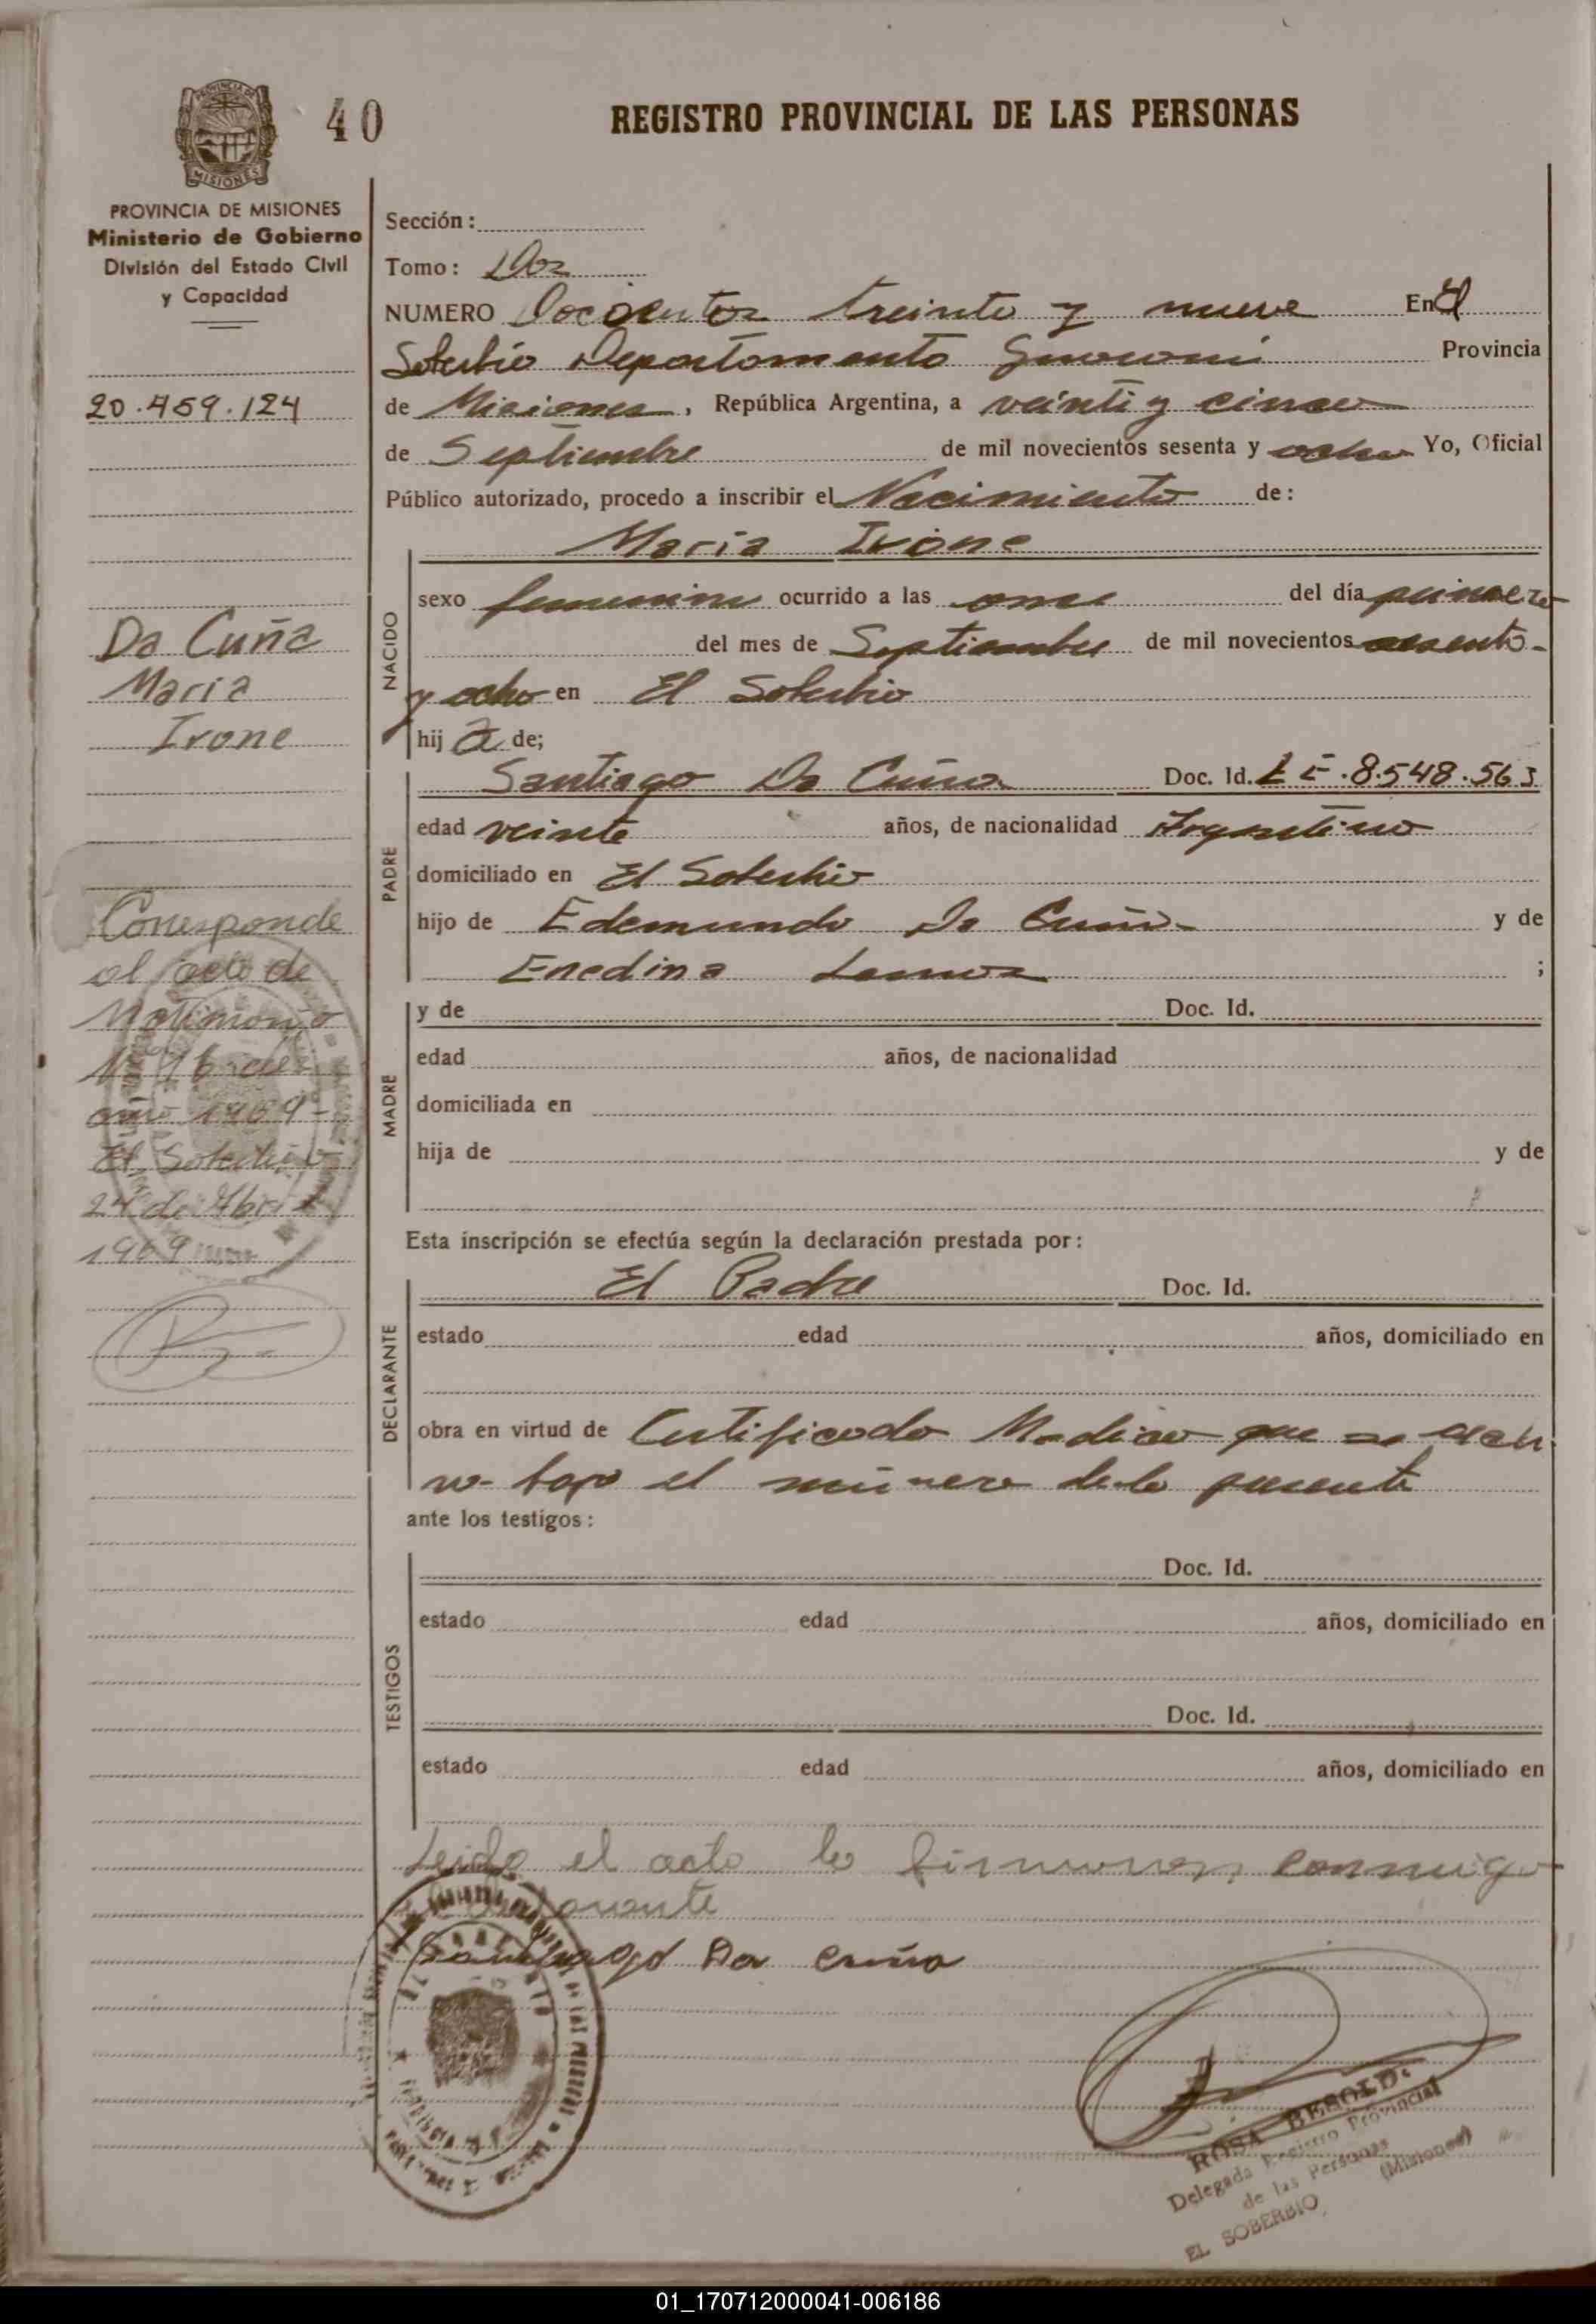 40
REGISTRO PROVINCIAL DE LAS PERSONAS
PROVINCIA DE MISIONES
Ministerio de Gobierno
División del Estado Civil
y Capacidad
Sección:
Tomo: Dos
NUMERO Docientos treinta y nueve En El
Soberbio Departamento Guarani Provincia
de Misiones, República Argentina, a veinti y cinco
de Septiembre de mil novecientos sesenta y ocho Yo, Oficial
Público autorizado, procedo a inscribir el Nacimiento de:
Maria Ivone
20.459.124
Da Cuña
Maria
Ivone
NACIDO
sexo femenino ocurrido a las once del día primero
del mes de Septiembre de mil novecientos sesenta
y ocho en El Soberbio
hija de;
PADRE
Santiago Da Cuña Doc. Id. L E .8.548.563
edad veinte años, de nacionalidad Argentino
domiciliado en El Soberbio
hijo de Edemundo Da Cuña y de
Enedina Lemos ;
Corresponde
al acta de
Matimonio
Nº 16 del
año 1969-
El Soberbio
24 de Abril
1969
MADRE
y de Doc. Id.
edad años, de nacionalidad
domiciliada en
hija de y de
Esta inscripción se efectúa según la declaración prestada por:
DECLARANTE
El Padre Doc. Id.
estado edad años, domiciliado en
obra en virtud de Certificado Medico que se archi
vo bajo el número de la presente
ante los testigos:
TESTIGOS
Doc. Id.
estado edad años, domiciliado en
Doc. Id.
estado edad años, domiciliado en
Leido el acta la firmaron conmigo
Santiago Da Cuña
ROSA BESOLD.
Delegada Registro Provincial
de las Personas
EL SOBERBIO (Misiones)
01_170712000041-006186